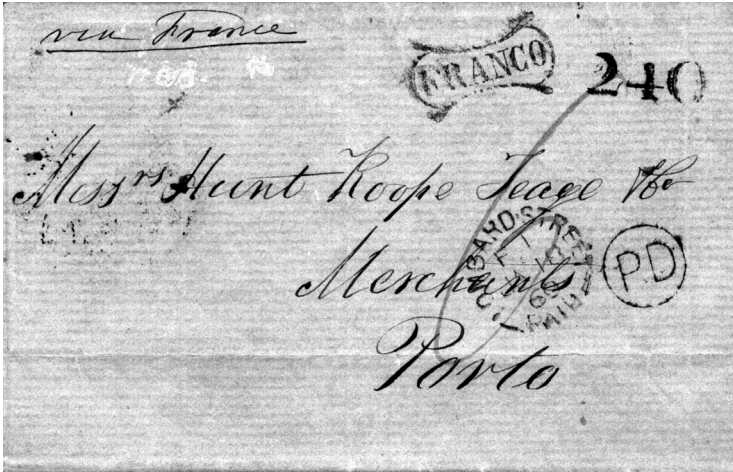 via France
FRANCO
240
Messrs Hunt Roope Teage & Co
Merchants
Porto
LOMBARD STREET
PAID
P.D